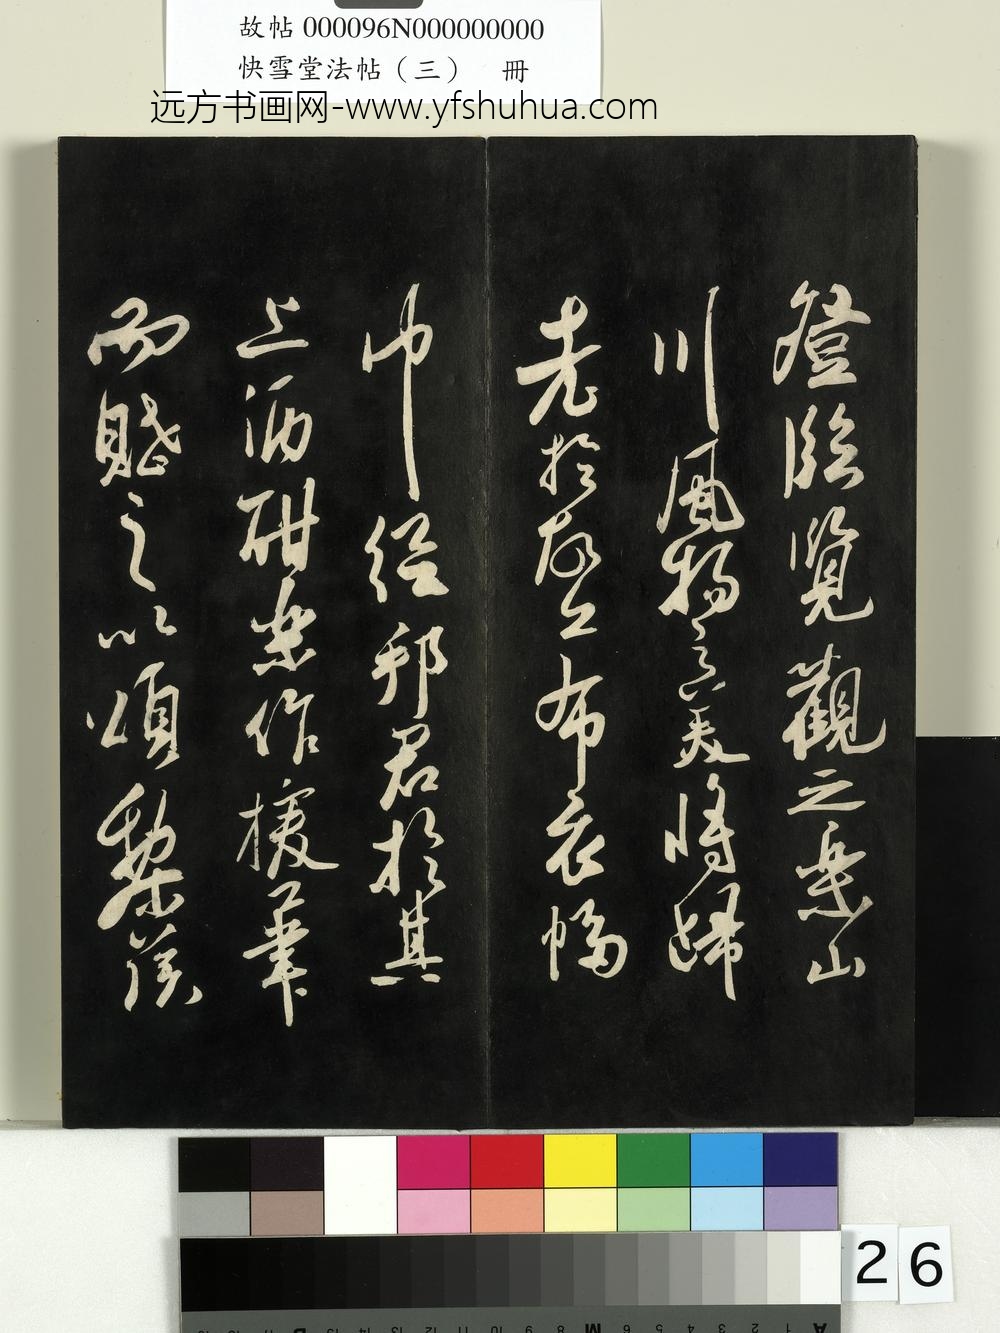 故帖 000096N000000000
快雪堂法帖（三） 冊
远方书画网-www.yfshuhua.com
登臨覽觀之樂山
川風物之美將歸
老於故丘布衣幅
巾從邦君於其
上酒酣樂作援筆
而賦之以頌黎侯
26